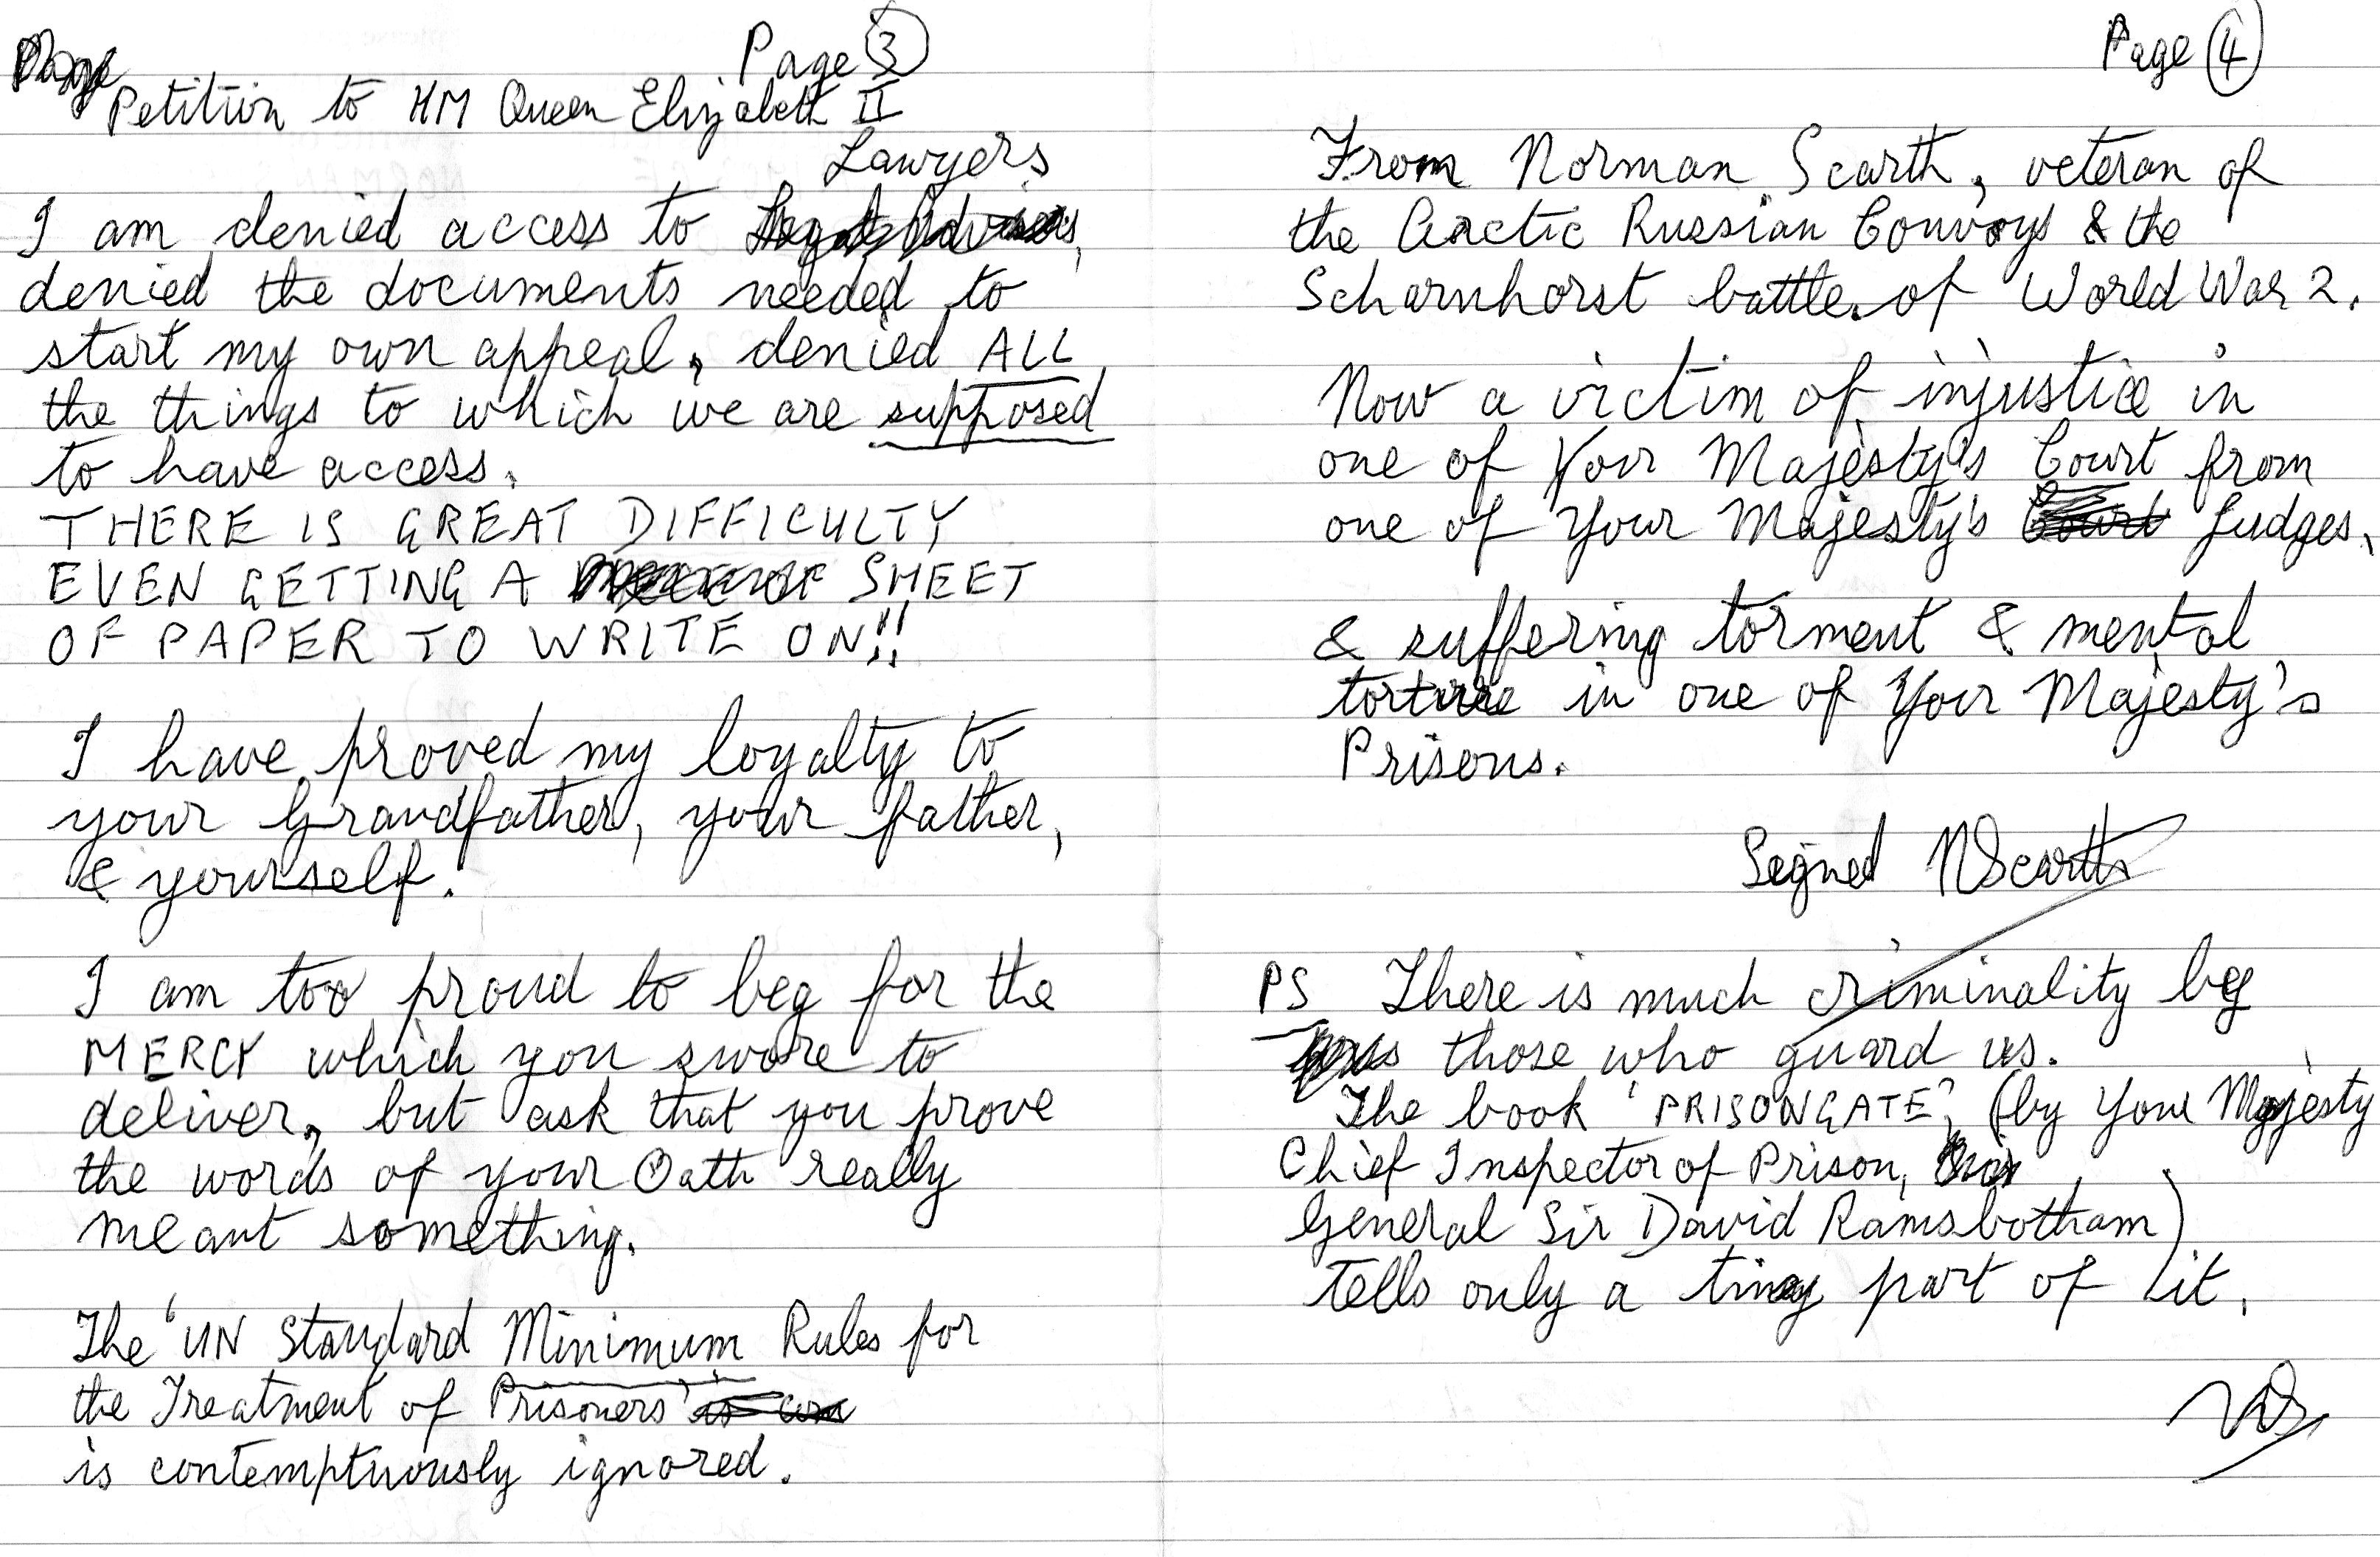 Page 3
Petition to HM Queen Elizabeth II
Lawyers
I am denied access to Legal Advisers,
denied the documents needed to
start my own appeal, denied ALL
the things to which we are supposed
to have access.
THERE IS GREAT DIFFICULTY
EVEN GETTING A PIECE OF SHEET
OF PAPER TO WRITE ON!!
I have proved my loyalty to
your Grandfather, your father,
& yourself.
I am too proud to beg for the
MERCY which you swore to
deliver, but ask that you prove
the words of your Oath really
meant something.
The 'UN Standard Minimum Rules for
the Treatment of Prisoners' is con
is contemptuously ignored.
Page 4
From Norman Scarth, veteran of
the Arctic Russian Convoys & the
Scharnhorst battle of World War 2.
Now a victim of injustice in
one of Your Majesty's Court from
one of Your Majesty's Court Judges,
& suffering torment & mental
torture in one of Your Majesty's
Prisons.
Signed NScarth
PS There is much criminality by
those who guard us.
The book 'PRISONGATE', (by Your Majesty
Chief Inspector of Prison,
General Sir David Ramsbotham)
tells only a tiny part of it.
NS